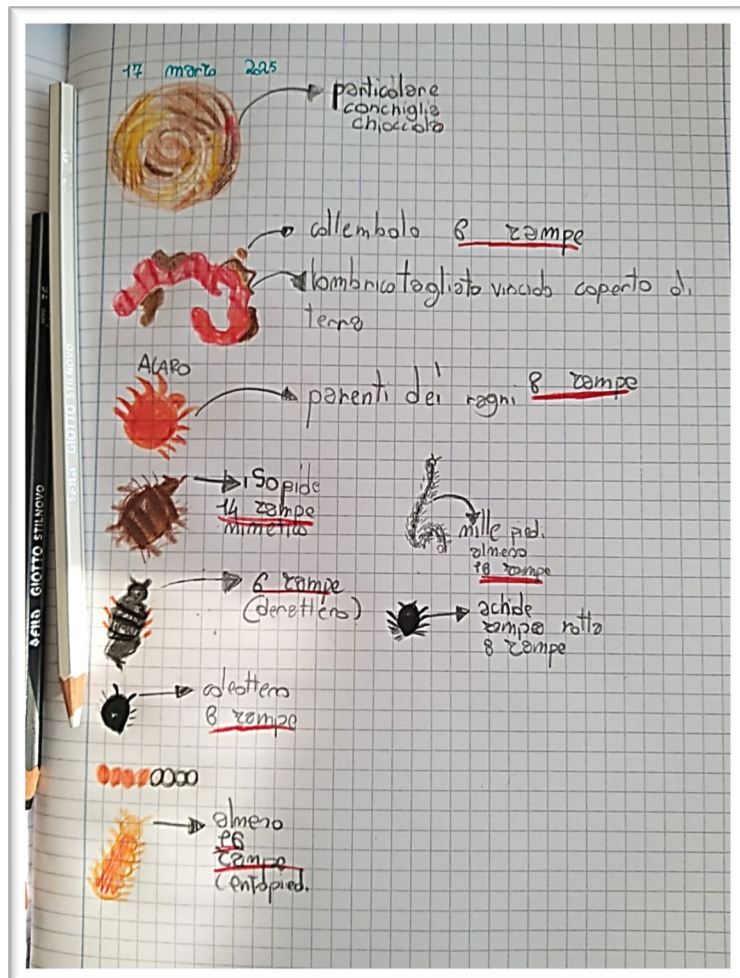 17 marzo 2025
particolare
conchiglia
chiocciola
collembolo 6 zampe
lombrico tagliato viscido coperto di
terra
ACARO
parenti dei ragni 8 zampe
isopide
14 zampe
mimetico
mille pied.
almeno
16 zampe
6 zampe
(derettero)
acnide
zampa rotta
8 zampe
coleottero
6 zampe
almeno
16
zampe
centopied.
FILA GIOTTO STILNOVO
FILA GIOTTO STILNOVO